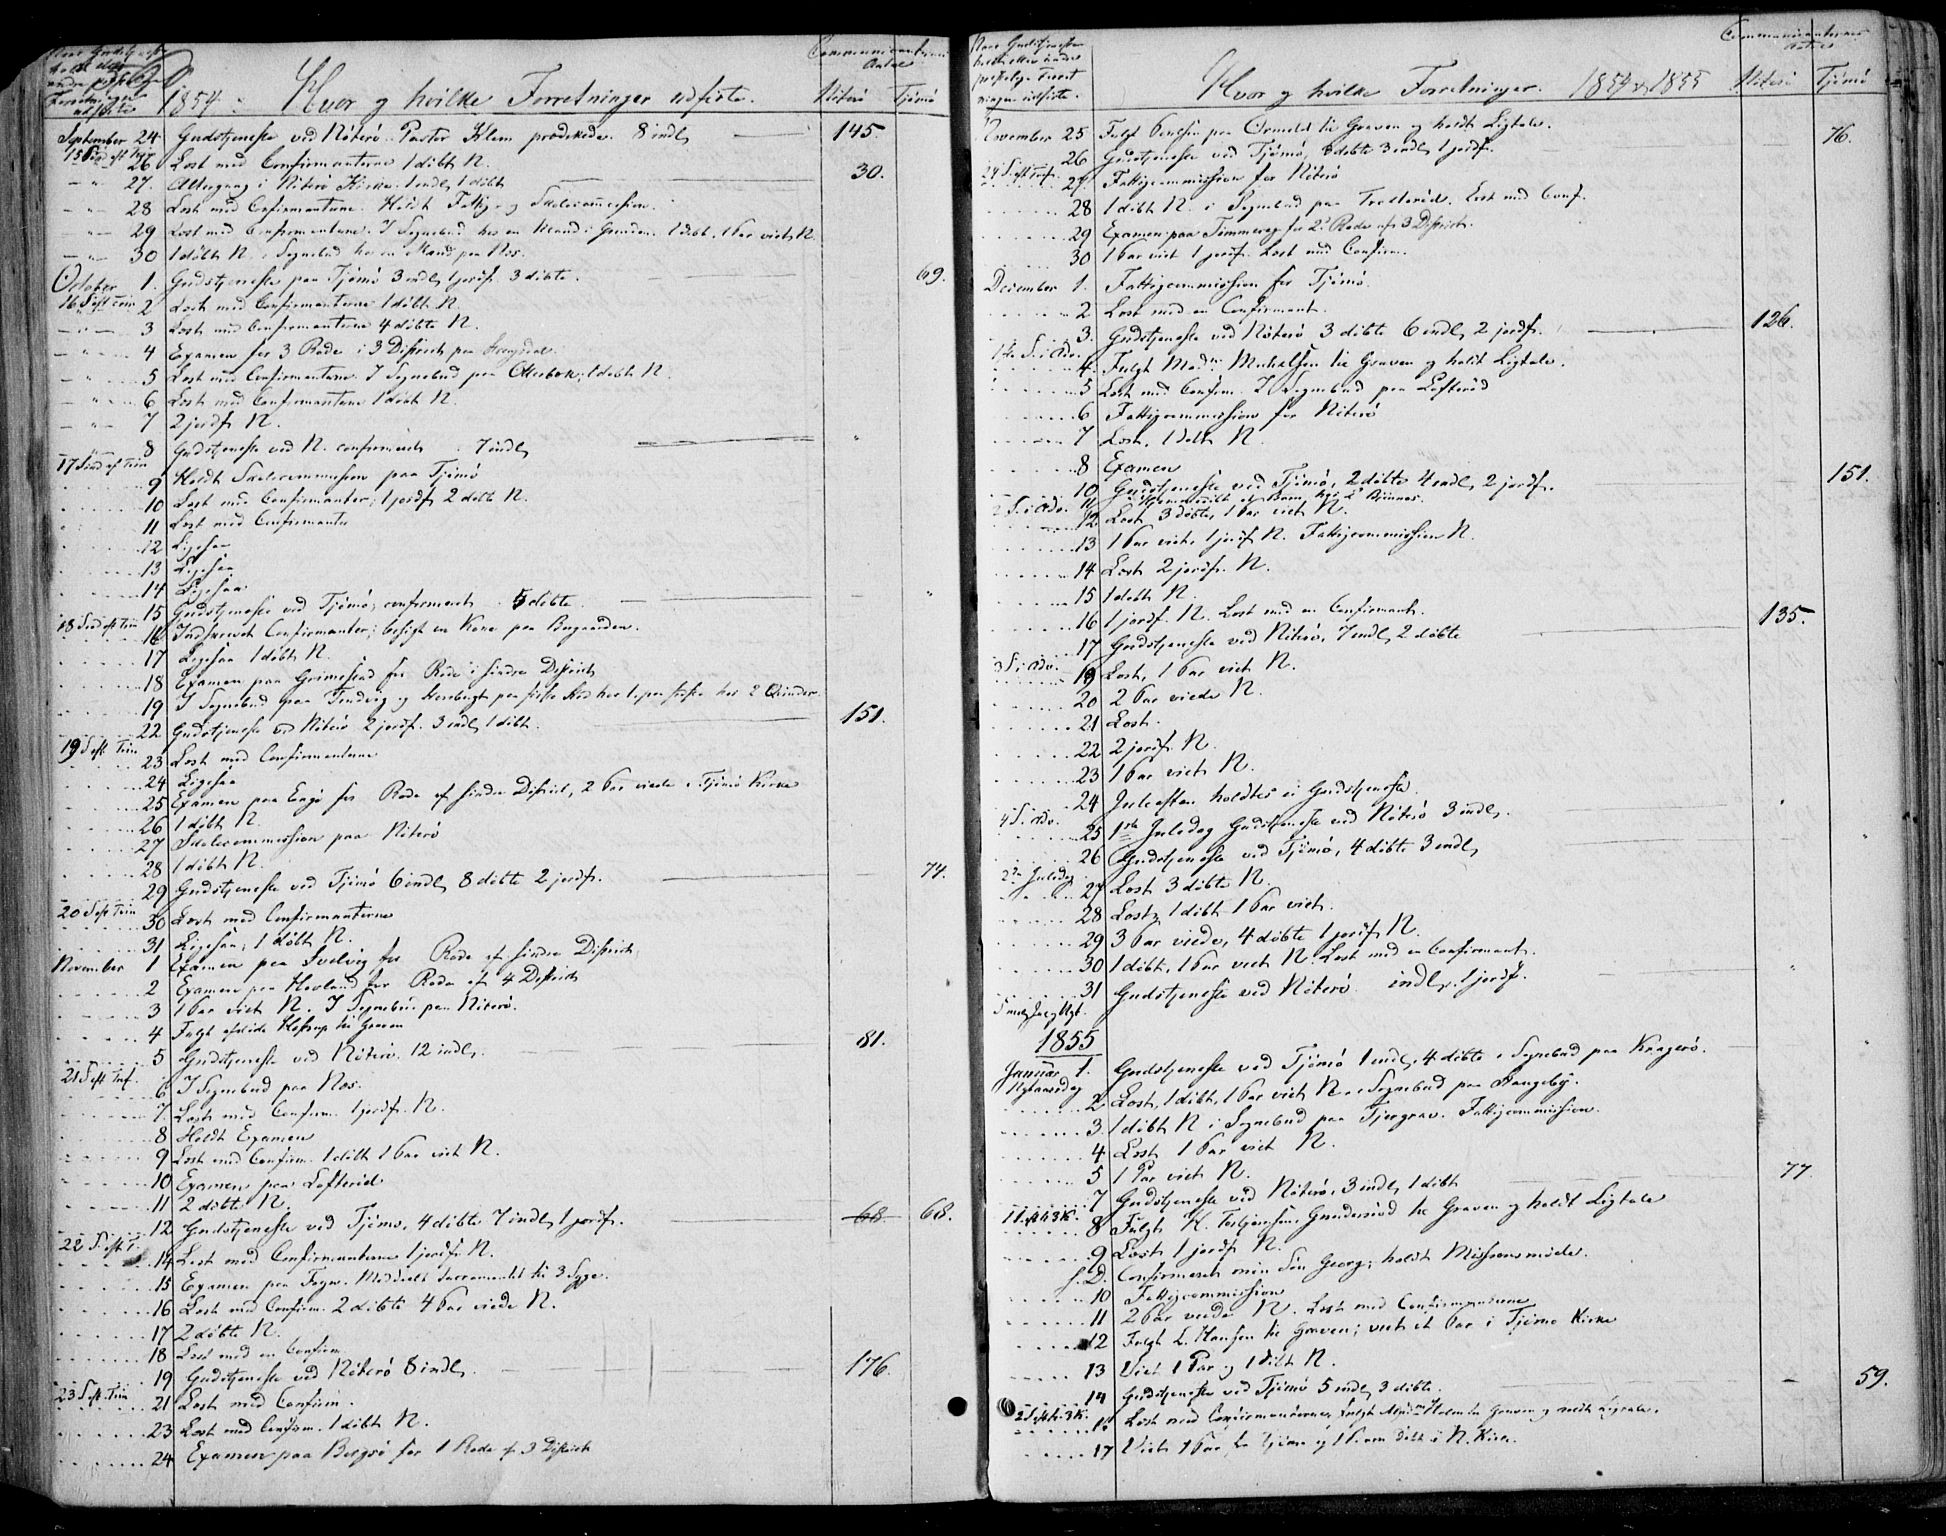 1854: Hvor og hvilke Forretninger udførte.
Communicanternes Antal
Nöterö Tjömö
September 24 Gudstjeneste ved Nöterö. Pastor Klem prædikede. 8 indl. 145.
15 Sønd eft Trin
26 Læst med Confirmanterne 1 döbt N.
27. Altergang i Nöterö Kirke. 1 indl. 1 döbt 30.
28 Læst med Confirmanterne. Holdt Fattig- og Skolecommission.
29 Læst med Confirmanterne. I Sognebud hos en Mand i 1 döbt. 1 Par viet N.
30 1 döbt N. i Sognebud hos en Mand paa Næs.
October 1. Gudstjeneste paa Tjömö 3 indl. 1 jordf. 3 döbte. 69.
16 S eft Trin
2 Læst med Confirmanterne 1 döbt N.
3 Læst med Confirmanterne 4 döbte N.
4 Examen for 3 Rode i 3 District paa
5 Læst med Confirmanterne I Sognebud paa Ollebakk, 1 döbt N.
6 Læst med Confirmanterne 1 döbt N.
7 2 jordf. N.
8 Gudstjeneste ved N. confirmeret 7 indl.
17 Sønd ef Trin
9 Holdt Skolecommission paa Tjömö
10 Læst med Confirmanter, 1 jordf. 2 döbte N.
11 Læst med Confirmanter
12 Ligesaa
13 Ligesaa
14 Ligesaa
15 Gudstjeneste ved Tjömö, confirmeret. 5 döbte.
18 Sønd eft Trin
16 Indskrevet Confirmanter; besøgt en Kone paa Borgaarden.
17 Ligesaa 1 döbt N.
18 Examen paa Grimestad for Rode i søndre District
19 I Sognebud paa hos 2 Qvinder.
22 Gudstjeneste ved Nöterö 2 jordf. 3 indl. 1 döbt. 151.
19 S eft Trin
23 Læst med Confirmanterne
24 Ligesaa
25 Examen paa Engö for Rode af søndre District, 2 Par viede i Tjömö Kirke
26 1 döbt N
27 Skolecommission paa Nöterö
28 1 döbt N.
29 Gudstjeneste ved Tjömö 6 indl. 8 döbte 2 jordf. 74.
20 S eft Trin
30 Læst med Confirmanterne
31 Ligesaa, 1 döbt N.
November 1 Examen paa Solvig for Rode af søndre District.
2 Examen paa Hovland for Rode af 4 District
3 1 Par viet N. I Sognebud paa Nöterö.
4 Fulgt til Graven
5 Gudstjeneste ved Nöterö. 12 indl. 81.
21 S eft Tref.
6 I Sognebud paa Næs.
7. Læst med Confirm. 1 jordf. N.
8 Holdt Examen
9 Læst med Confirm. 1 döbt 1 Par viet N.
10 Examen paa Lofteröd
11 2 döbte N.
12 Gudstjeneste ved Tjömö, 4 döbte 7 indl. 1 jordf. 68 68.
22 S. eft T.
14 Læst med Confirmanterne 1 jordf. N.
15 Examen paa Meddeelt Sacramentet til 3 Syge.
16 Læst med Confirm. 2 döbte 4 Par viede N.
17 2 döbte N.
18 Læst med en Confirm
19 Gudstjeneste ved Nöterö 8 indl. 176.
23 S eft. Trin
21 Læst med Confirm.
23 Læst med Confirm. 1 döbt N.
24 Examen paa for 1 Rode af 3 District
Hvor og hvilke Forretninger. 1854 & 1855
Communicanternes Antal
Nöterö Tjömö
November 25 Fulgt paa Ormelet til Graven og holdt Ligtale.
26 Gudstjeneste ved Tjömö, döbte 3 indl. 1 jordf. 76.
24 S eft Tref.
27 Fattigcommission for Nöterö
28 1 döbt N. i Sognebud paa Læst med Conf.
29 Examen paa for 2' Rode af 3 District.
30 1 Par viet 1 jordf. Læst med Confirm.
December 1. Fattigcommission for Tjömö.
2 Læst med en Confirmant.
3. Gudstjeneste ved Nöterö 3 döbte 6 indl. 2 jordf. 126.
1ste S. i Adv.
4. Fulgt Madm Michelsen til Graven og holdt Ligtale.
5 Læst med Confirm I Sognebud paa Lofteröd
6 Fattigcommission for Nöterö
7 Læst, 1 döbt N.
8 Examen
10 Gudstjeneste ved Tjömö, 2 döbte 4 indl. 2 jordf. 151.
2 S. i Adv.
11 Hjemmedöbt et Barn
12 Læst 3 döbte, 1 Par viet N.
13 1 Par viet, 1 jordf. N. Fattigcommission N.
14 Læst 2 jordf. N.
15 1 döbt N.
16 1 jordf. N. Læst med en Confirmant.
17 Gudstjeneste ved Nöterö, 7 indl. 2 döbte 135.
3 S i Adv.
19 Læst, 1 Par viet N.
20 2 Par viede N.
21 Læst.
22 2 jordf. N.
23 1 Par viet N.
24 Juleaften holdtes ei Gudstjeneste.
4 S. i Adv.
25 1ste Juledag Gudstjeneste ved Nöterö 3 indl.
26 Gudstjeneste ved Tjömö, 4 döbte 3 indl.
2den Juledag
27 Læst 3 döbte N.
28 Læst, 1 döbt 1 Par viet.
29 3 Par viede, 4 döbte 1 jordf. N.
30 1 döbt, 1 Par viet N. Læst med en Confirmant.
31 Gudstjeneste ved Nöterö. indl. 1 jordf.
1855
Januar 1. Gudstjeneste ved Tjömö 1 indl. 4 döbte i Sognebud paa Kragerö.
Nytaarsdag
2 Læst, 1 döbt, 1 Par viet N. i Sognebud paa Bangeby.
3. 1 döbt N i Sognebud paa Fattigcommission.
4 Læst 1 Par viet N.
5 1 Par viet N.
7 Gudstjeneste ved Nöterö, 3 indl. 1 döbt 77.
1 S. eft h 3 K.
8 Fulgt K. Gunderöd til Graven og holdt Ligtale
9 Læst 1 jordf. N.
S. D. Confirmeret min Sön Georg; holdt Missionsmøde.
10 Fattigcommission
11 2 Par viede N. Læst med Confirmanterne
12 Fulgt L. Hansen til Graven; viet et Par i Tjömö Kirke
13 Viet 1 Par og 1 döbt N.
14 Gudstjeneste ved Tjömö 5 indl. 3 döbte. 59.
2 S eft h 3 K.
16 Læst med Confirmanterne, fulgt Madm Holm til Graven og holdt Ligtale.
17 Viet 1 Par i N. Kirke.